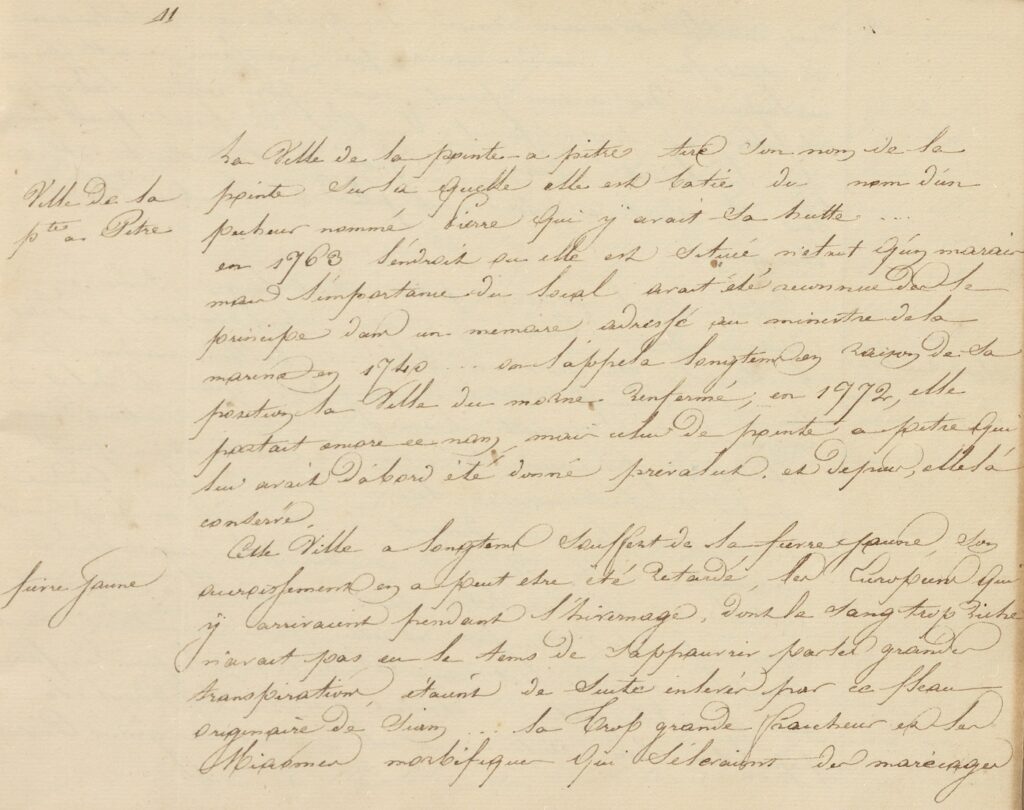 11
La Ville de la pointe a pitre tire son nom de la
Ville De la
pointe sur la quelle elle est batie du nom d'un
pte a Pitre
pecheur nommé Pierre qui ÿ avait sa hutte ....
en 1763 l'éndroit ou elle est située n'etait qu'un marais
mais l'importance du local avait été reconnue des le
principe dans un memoire adressé au ministre de la
marine en 1740 ... on l'appela longtems en raison de sa
position la Ville du morne Renfermé; en 1772, elle
portait encore ce nom, mais celui de pointe a pitre qui
lui avait d'abord été donné prévalut. et depuis, elle l'á
conservé
Cette Ville a longtems souffert de la fievre jaune, son
fievre Jaune
accroissement en a peut etre été retardé, les Européens qui
ÿ arrivaient pendant l'hivernage, dont le sang trop riche
n'avait pas eu le tems de s'appauvrir par les grandes
transpirations, étaient de suite enlevés par ce fleau
originaire de Siam ... la trop grande fraicheur et les
Miasmes morbifiques qui s'élevaient des marécages